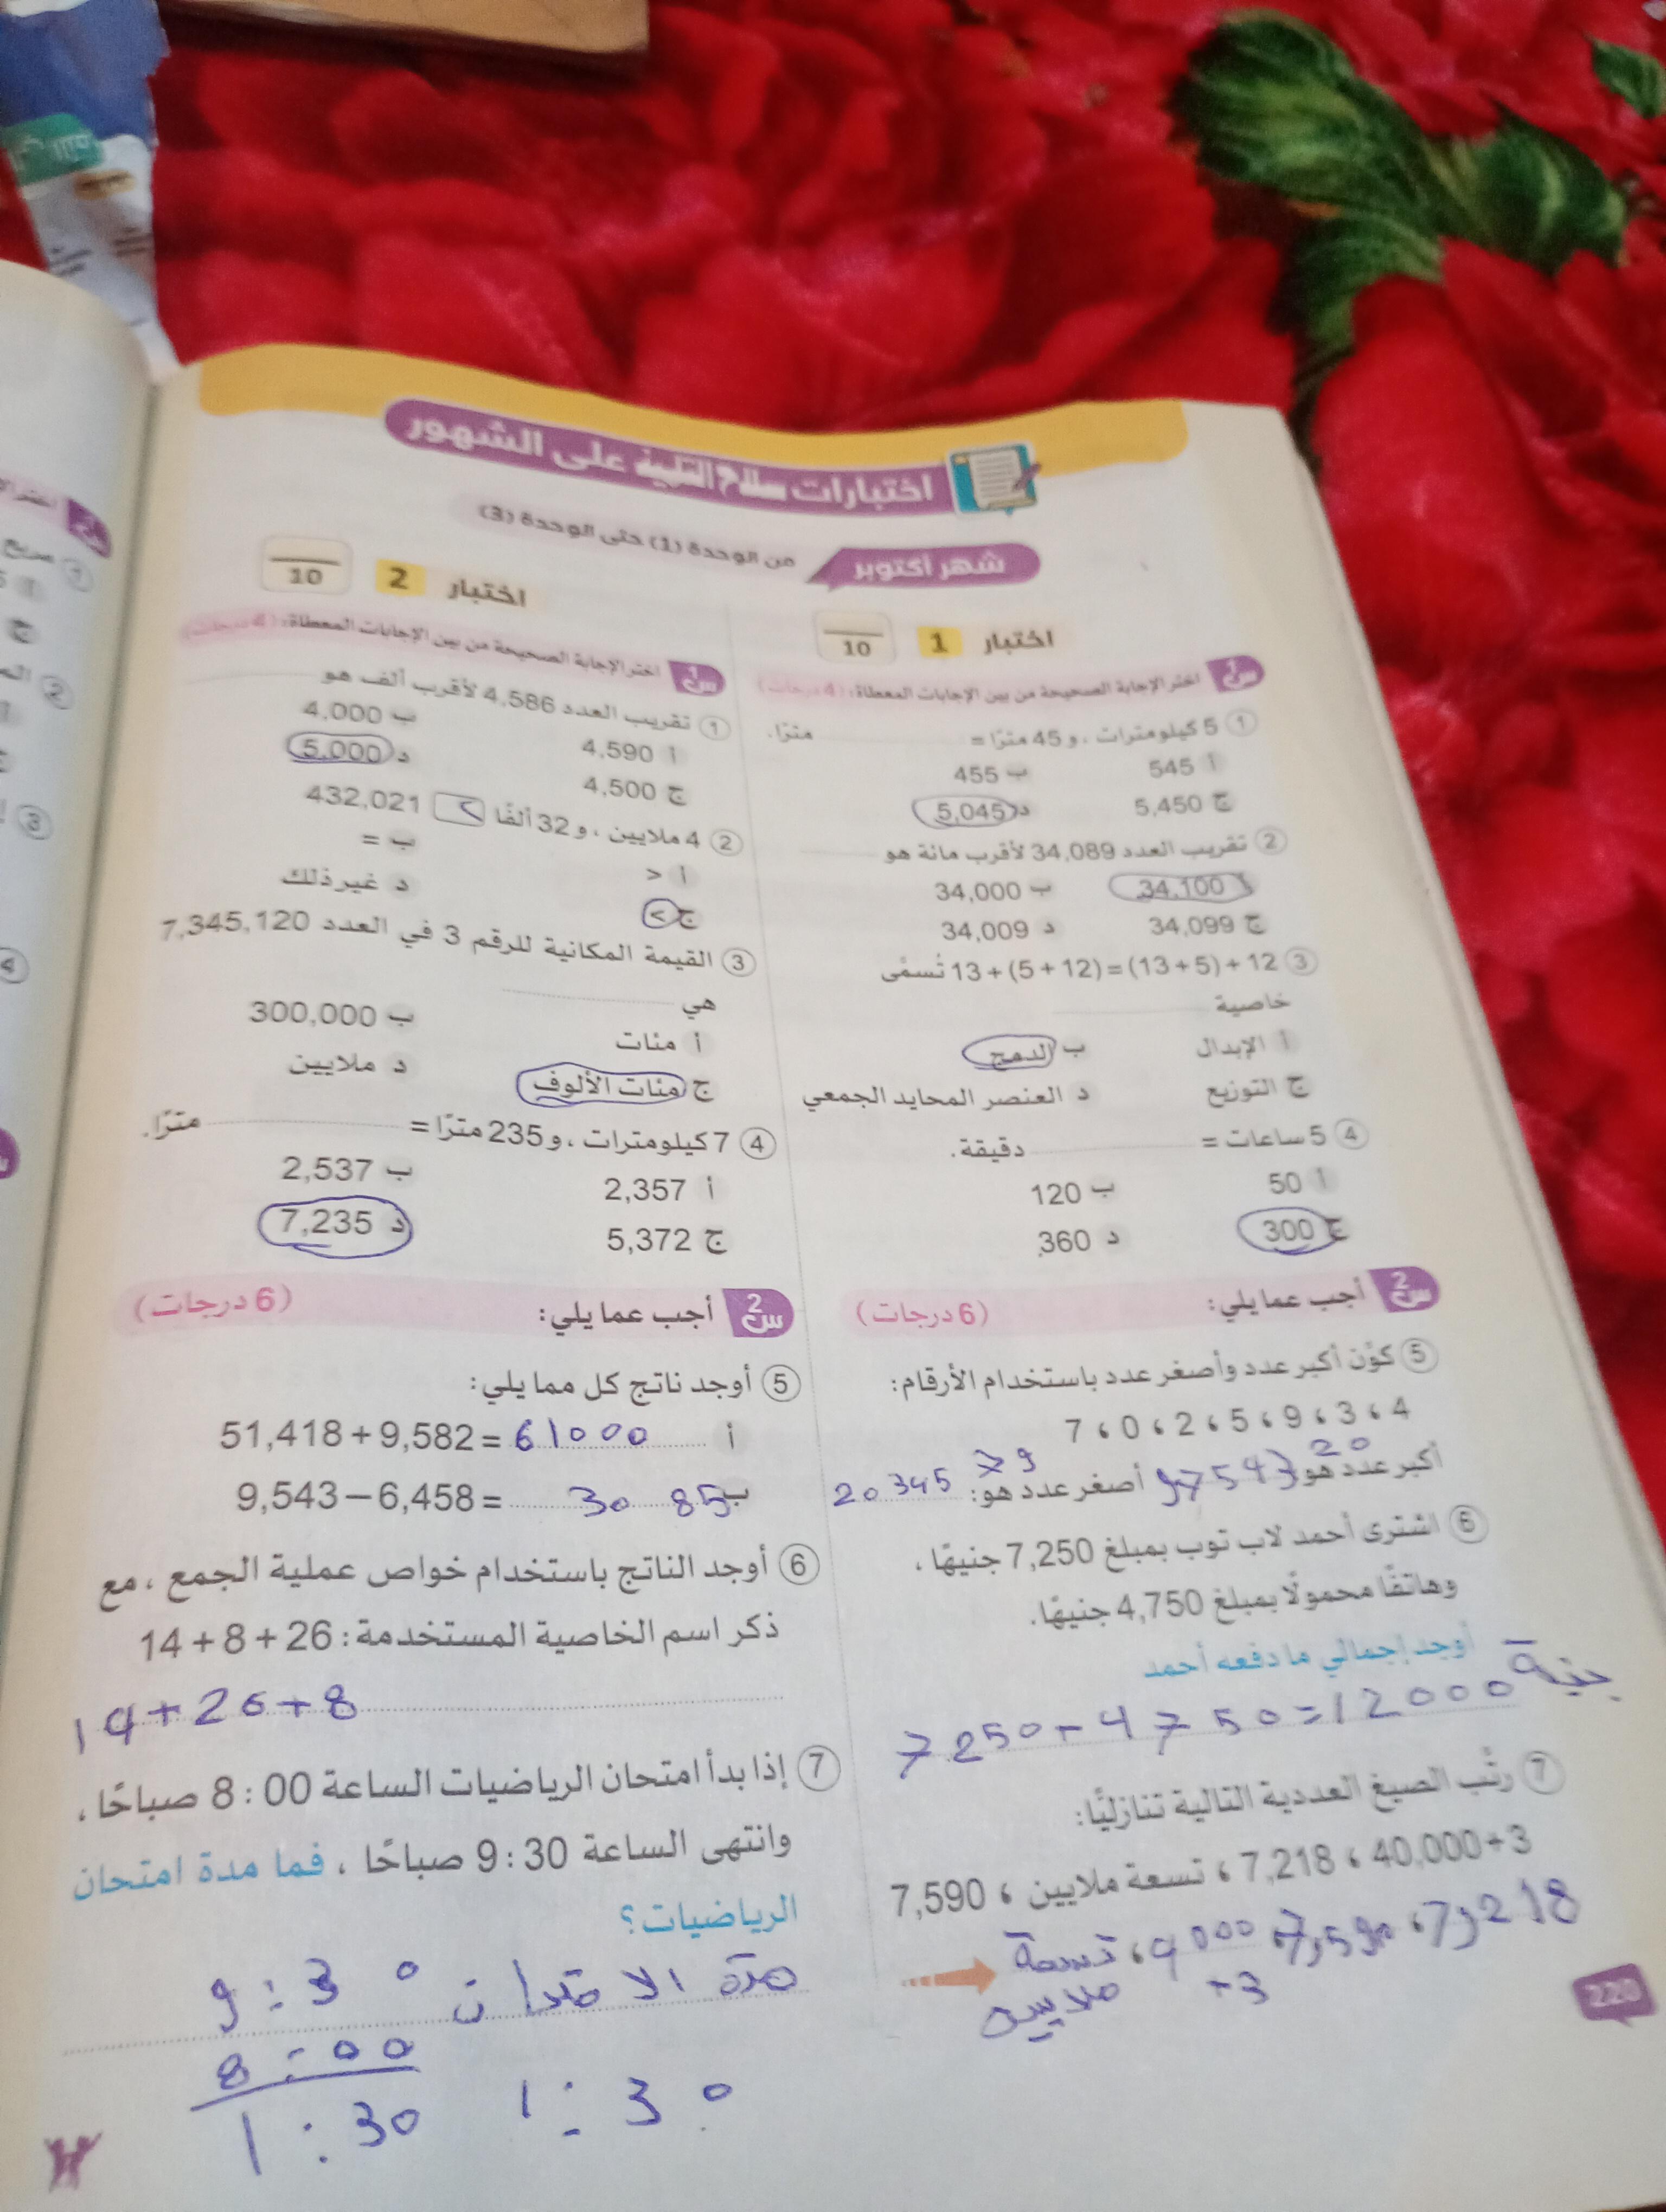 اختبارات سلاح التلميذ على الشهور
شهر أكتوبر
من الوحدة (1) حتى الوحدة (3)
اختبار 1
10
س1 اختر الإجابة الصحيحة من بين الإجابات المعطاة: (4 درجات)
1 5 كيلومترات ، و 45 مترًا = مترًا.
أ 545 ب 455
ج 5,450 د 5,045
2 تقريب العدد 34,089 لأقرب مائة هو
أ 34,100 ب 34,000
ج 34,099 د 34,009
3 13 + (5 + 12) = (13 + 5) + 12 تُسمى
خاصية
أ الإبدال ب الدمج
ج التوزيع د العنصر المحايد الجمعي
4 5 ساعات = دقيقة.
أ 50 ب 120
ج 300 د 360
س2 أجب عما يلي: (6 درجات)
5 كوِّن أكبر عدد وأصغر عدد باستخدام الأرقام:
7 ، 0 ، 2 ، 5 ، 9 ، 3 ، 4
أكبر عدد هو 9754320 أصغر عدد هو: 2034579
6 اشترى أحمد لاب توب بمبلغ 7,250 جنيهًا ،
وهاتفًا محمولًا بمبلغ 4,750 جنيهًا.
أوجد إجمالي ما دفعه أحمد
7250 + 4750 = 12000 جنية
7 رتِّب الصيغ العددية التالية تنازليًّا:
40,000+3 ، 7,218 ، تسعة ملايين ، 7,590
7,218 ، 7,590 ، 4000+3 ، تسعة ملايين
220
اختبار 2
10
س1 اختر الإجابة الصحيحة من بين الإجابات المعطاة: (4 درجات)
1 تقريب العدد 4,586 لأقرب ألف هو
أ 4,590 ب 4,000
ج 4,500 د 5,000
2 4 ملايين ، و 32 ألفًا > 432,021
أ < ب =
ج > د غير ذلك
3 القيمة المكانية للرقم 3 في العدد 7,345,120
هي
أ مئات ب 300,000
ج مئات الألوف د ملايين
4 7 كيلومترات ، و 235 مترًا = مترًا.
أ 2,357 ب 2,537
ج 5,372 د 7,235
س2 أجب عما يلي: (6 درجات)
5 أوجد ناتج كل مما يلي:
أ 51,418 + 9,582 = 61000
ب 9,543 – 6,458 = 3085
6 أوجد الناتج باستخدام خواص عملية الجمع ، مع
ذكر اسم الخاصية المستخدمة : 14 + 8 + 26
14+26+8
7 إذا بدأ امتحان الرياضيات الساعة 8:00 صباحًا ،
وانتهى الساعة 9:30 صباحًا ، فما مدة امتحان
الرياضيات؟
مدة الامتحان 9:30
8:00
1:30 1:30